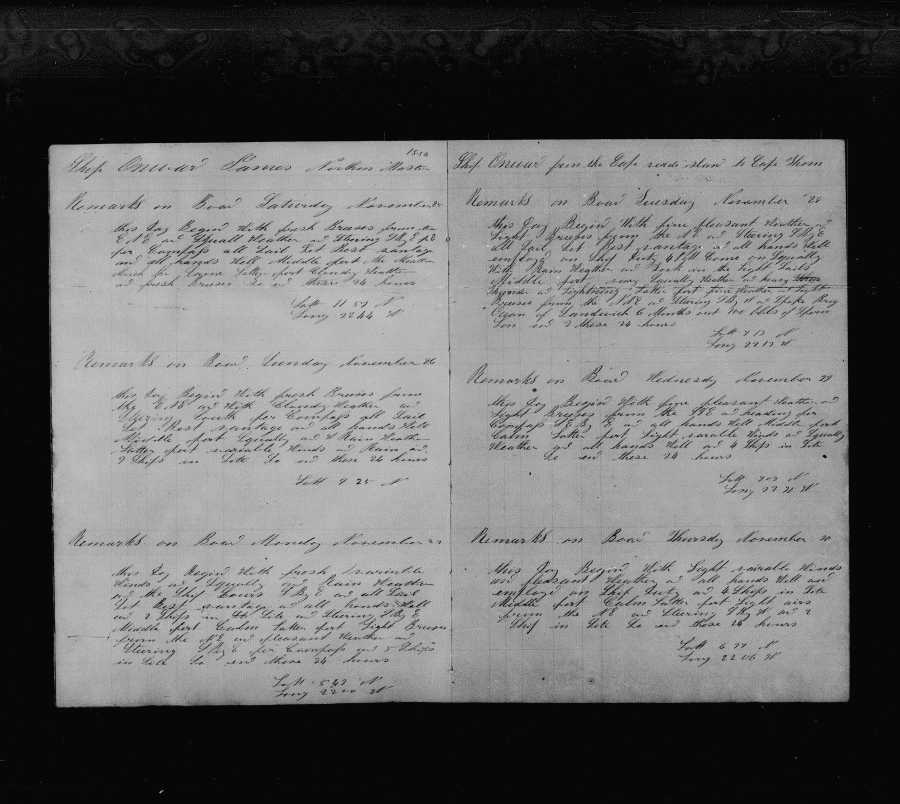 1854
Ship Onward James Northon Master
Remarks on Board Saturday November 25
this Day Begin With fresh Breses from the
E N E and Squall Heather and Stering S By E
per Compass all Sail Set Best vantage
and all hands Well Middle port the Heather
Much the Same Latter port Cloudy Heather
and fresh Breses So end these 24 hours
Latt 11 59 N
Long 22 44 W
Remarks on Board Sunday November 26
this Day Begin With fresh Breses from
the E N E and With Cloudy Heather and
Stering South per Compass all Sail
Set Best vantage and all hands Well
Middle port Squally and Rain Heather
Latter port variable Winds and Rain and
2 Ships in Site So end these 24 hours
Latt 9 25 N
Remarks on Board Monday November 27
this Day Begin With fresh variable
Winds and Squally and Rain Heather
and the Ship Corses S By E and all Sail
Set Best vantage and all hands Well
and 2 Ships in Site and Stering S By E
Middle port Calm Latter port Light Breses
from the N E and pleasant Heather and
Stering S By E per Compass and 5 Ships
in Site So end these 24 hours
Latt 5 49 N
Long 22 00 W
Ship Onward from the Cape verds Island to Cape Horn
Remarks on Board Tuesday November 28
this Day Begin With fine pleasant Heather
Light Breses from the N E and Stering S By E
all Sail Set Best vantage and all hands Well
employd on Ship Duty 4 PM Come on Squally
With Rain Heather and Took in the Light Sails
Middle port very Squally Heather and heavy
thunder and Lightning Latter port fine Heather Light
Breses from the N N E and Stering S By W and Spoke Brig
Ocean of Sandwich 6 Months out 100 Bbls of Sperm
Son end these 24 hours
Latt 7 13 N
Long 22 13 W
Remarks on Board Wednesday November 29
this Day Begin With fine pleasant Heather and
Light Breses from the and heading per
Compass S E By E and all hands Well Middle port
Calm Latter port Light variable Winds and Squally
Heather and all hands Well and 4 Ships in Site
So end these 24 hours
Latt 7 03 N
Long 22 21 W
Remarks on Board Thursday November 30
this Day Begin With Light variable Winds
and pleasant Heather and all hands Well and
employd on Ship Duty and 4 Ships in Site
Middle port Calm Latter port Light airs
from the N E and Stering S By W and 2
Ship in Site So end these 24 hours
Latt 6 37 N
Long 22 06 W